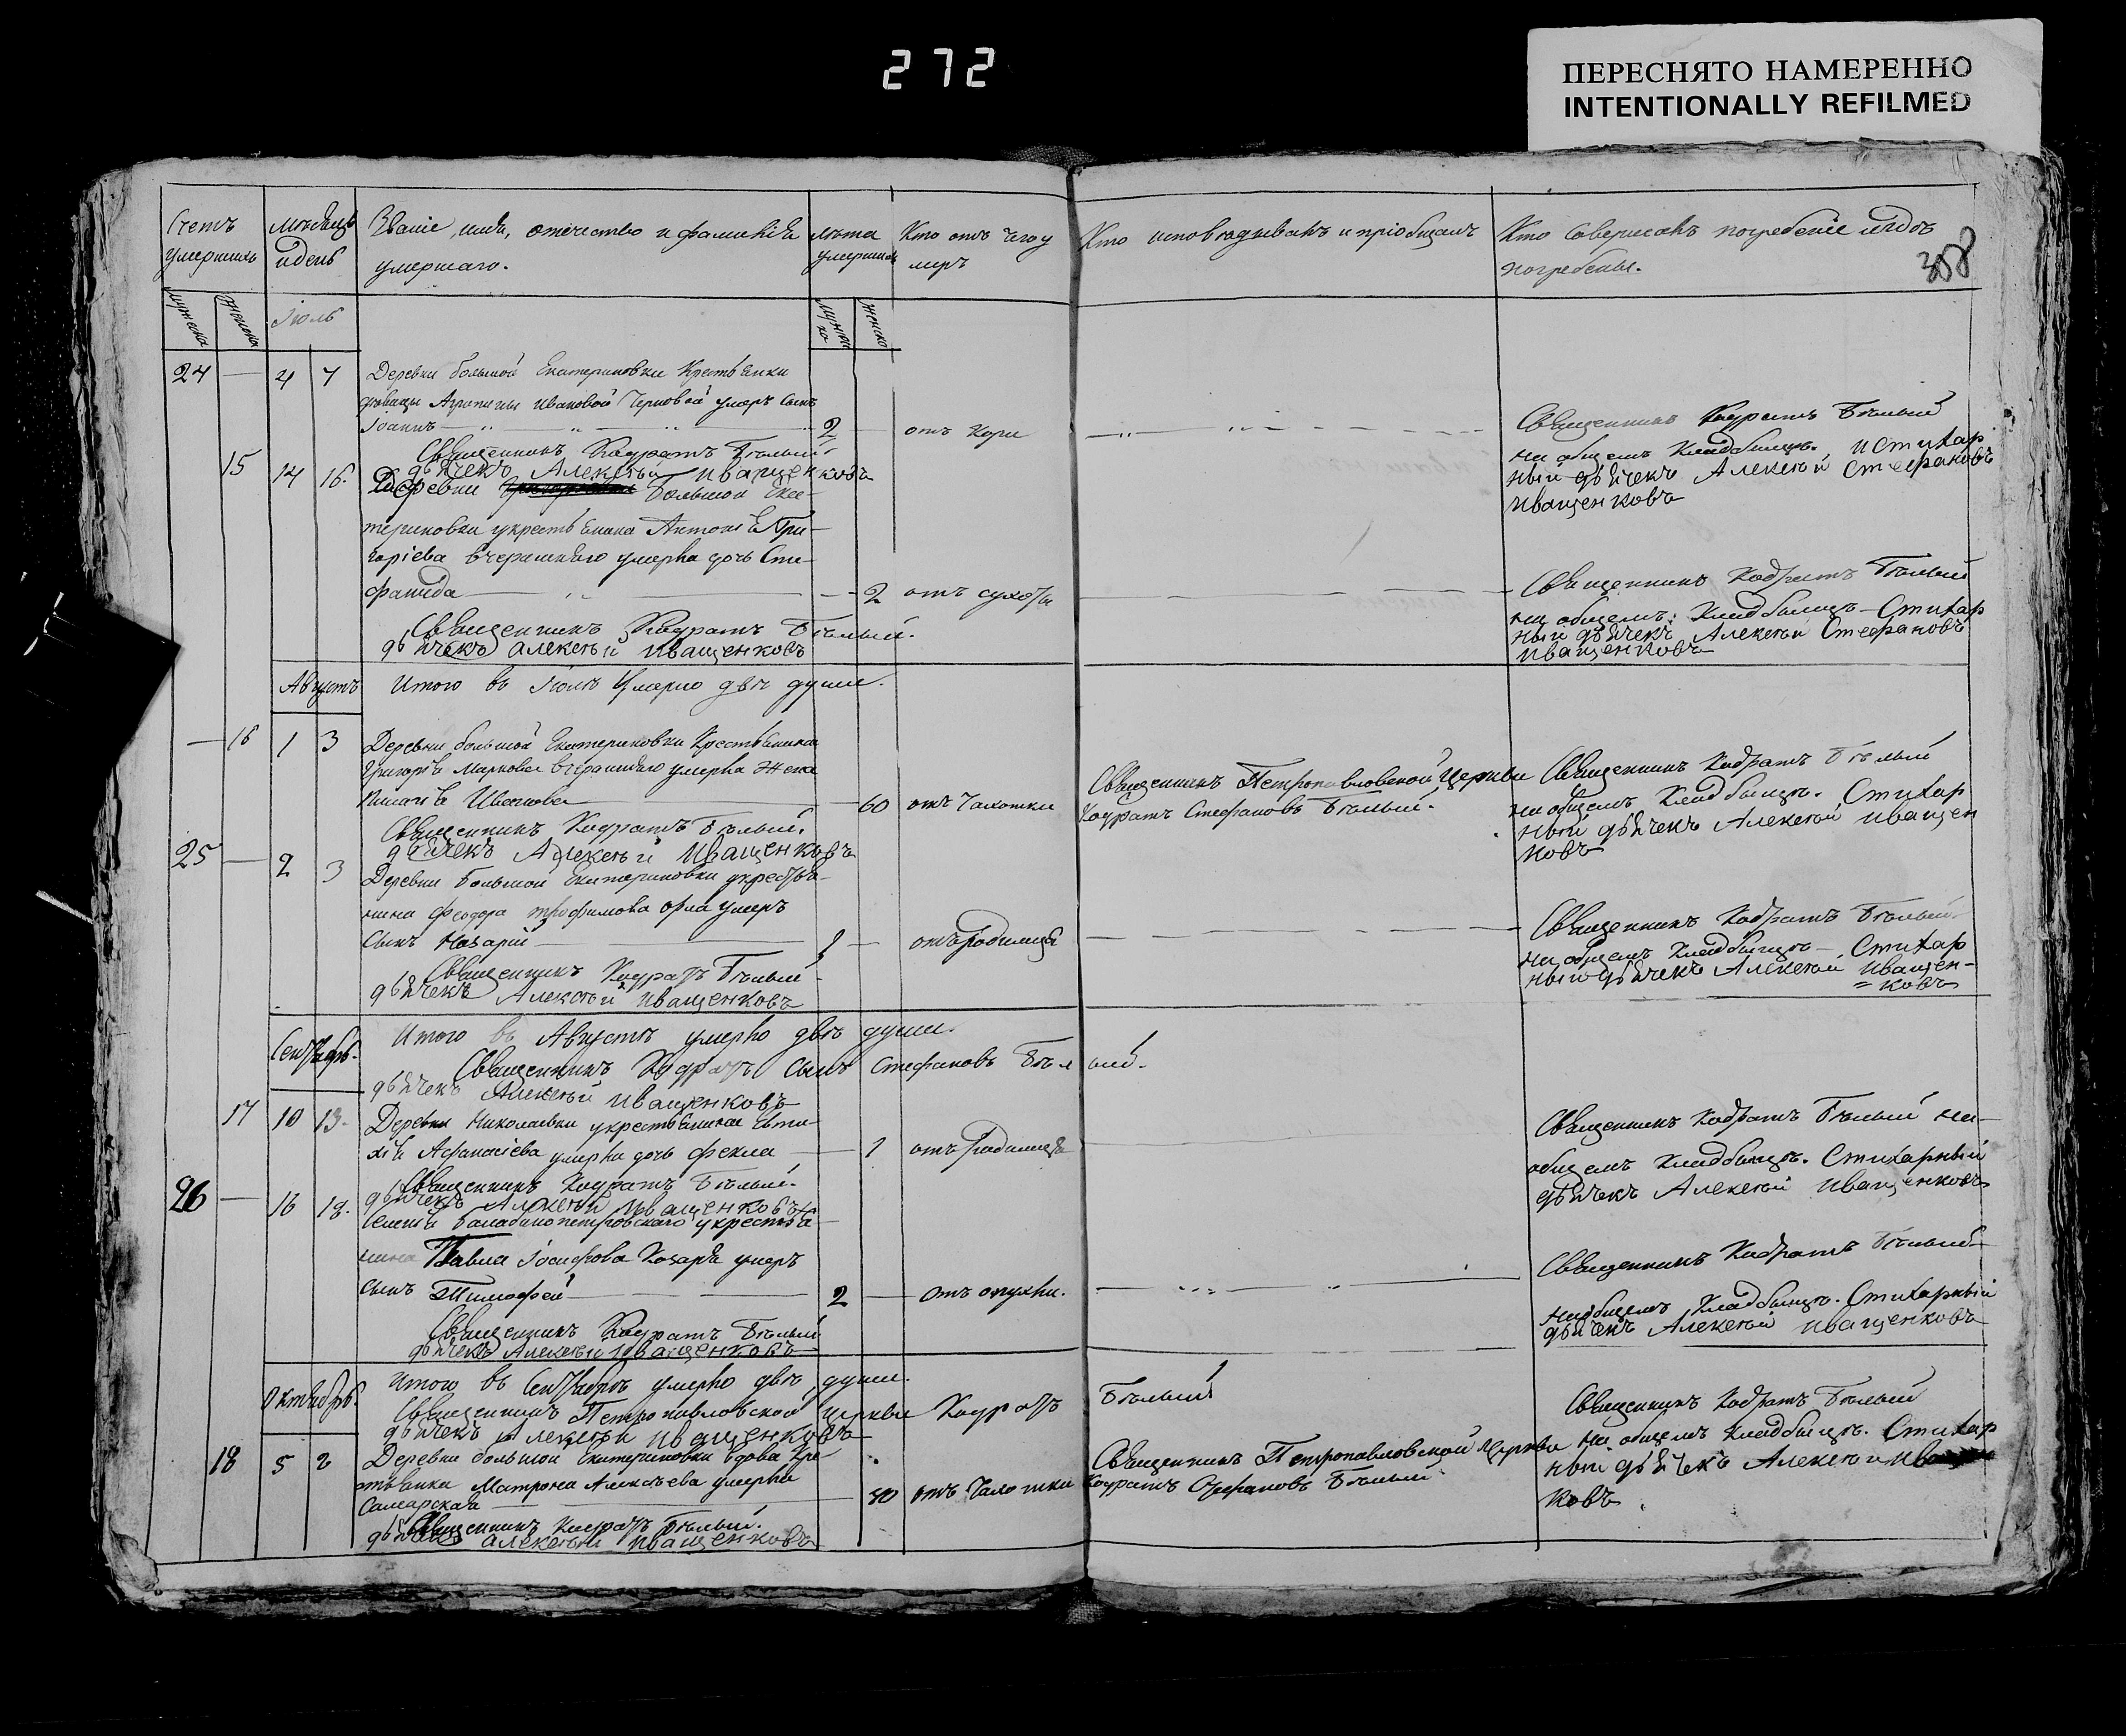 272
ПЕРЕСНЯТО НАМЕРЕННО
INTENTIONALLY REFILMED
358
Счетъ умершихъ
Мѣсяцъ и день
Званіе, имя, отечество и фамилія умершаго.
Лѣта умершихъ
Кто отъ чего умеръ
Кто исповѣдывалъ и пріобщалъ
Кто совершалъ погребеніе и гдѣ погребены.
Мужеска
Женска
Іюль
Мужеска
Женска
24 — 4 7 Деревни большой Екатериновки Крестьянки
дѣвицы Агрипины Ивановой Черновой умеръ сынъ
Іоаннъ 2 отъ Кори
Священникъ Кодратъ Бѣлый
на общемъ Кладбищѣ. и Стихар
ный дьячекъ Алексѣй Стефановъ
Иващенковъ
Священникъ Кодратъ Бѣлый
дьячекъ Алексѣй Иващенковъ
15 14 16. Деревни Большой Ека-
териновки у крестьянина Антонія Гри-
горіева Вчерашняго умерла дочь Сте-
фанида — 2 отъ сухоты
Священникъ Кодратъ Бѣлый
на общемъ Кладбищѣ — Стихар
ный дьячекъ Алексѣй Стефановъ
Иващенковъ
Священникъ Кодратъ Бѣлый.
дьячекъ Алексѣй Иващенковъ
Августъ
Итого въ Іюлѣ умерло двѣ души.
— 16 1 3 Деревни большой Екатериновки Крестьянина
Григорія Маркова Вчерашняго умерла жена
Ивanova 60 отъ Чахотки
Священникъ Петропавловской Церкви
Кодратъ Стефановъ Бѣлый.
Священникъ Кодратъ Бѣлый
на общемъ Кладбищѣ. Стихар
ный дьячекъ Алексѣй Иващен
ковъ
Священникъ Кодратъ Бѣлый.
дьячекъ Алексѣй Иващенковъ
25 — 2 3 Деревни Большой Екатериновки у крестья-
нина Феодора Трофимова Орла умеръ
сынъ Назарій 1 — отъ родимца
Священникъ Кодратъ Бѣлый
на общемъ Кладбищѣ — Стихар
ный дьячекъ Алексѣй Иващен-
=ковъ
Священникъ Кодратъ Бѣлый
дьячекъ Алексѣй Иващенковъ
Сентябрь.
Итого въ Августѣ умерло двѣ души.
Священникъ Кодратъ сынъ Стефановъ Бѣлый.
дьячекъ Алексѣй Иващенковъ
17 10 13. Деревни Николаевки у крестьянина Евти-
хія Афанасіева умерла дочь Фекла — 1 отъ родимца
Священникъ Кодратъ Бѣлый на-
общемъ Кладбищѣ. Стихарный
дьячекъ Алексѣй Иващенковъ
Священникъ Кодратъ Бѣлый.
дьячекъ Алексѣй Иващенковъ
26 — 16 18. Селенія Балабинопетровскаго у крестья-
нина Павла Іосифова Козаря умеръ
сынъ Тимофей 2 — отъ опухли.
Священникъ Кодратъ Бѣлый
на общемъ Кладбищѣ. Стихарный
дьячекъ Алексѣй Иващенковъ
Священникъ Кодратъ Бѣлый
дьячекъ Алексѣй Иващенковъ
Октябрь.
Итого въ Сентябрѣ умерло двѣ души.
Священникъ Петропавловской Церкви Кодратъ Бѣлый
дьячекъ Алексѣй Иващенковъ
18 5 2 Деревни большой Екатериновки вдова Кре
стьянка Матрона Алексѣева умерла
Самарская 80 отъ Чахотки
Священникъ Петропавловской Церкви
Кодратъ Стефановъ Бѣлый
Священникъ Кодратъ Бѣлый
на общемъ Кладбищѣ. Стихар
ный дьячекъ Алексѣй Иващен
ковъ.
Священникъ Кодратъ Бѣлый.
дьячекъ Алексѣй Иващенковъ